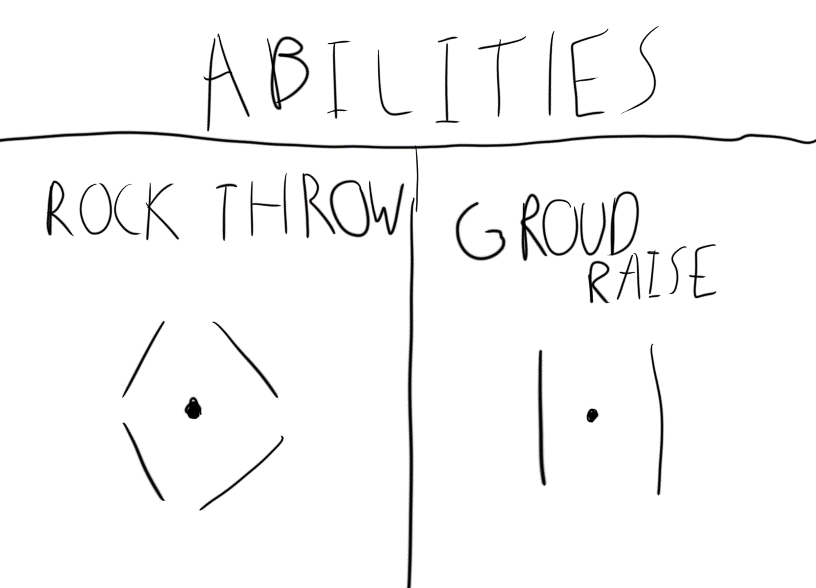 ABILITIES
ROCK THROW
GROUD
RAISE